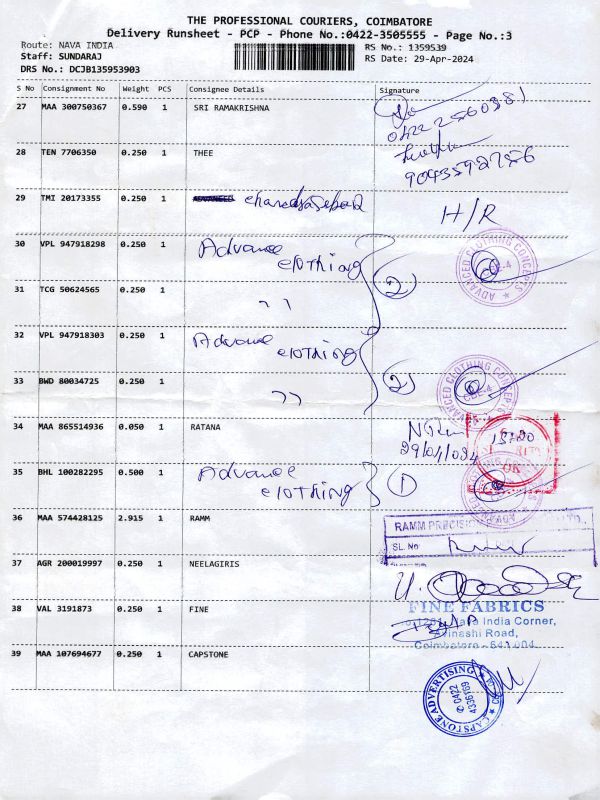 THE PROFESSIONAL COURIERS, COIMBATORE
Delivery Runsheet - PCP - Phone No.:0422-3505555 - Page No.:3
Route: NAVA INDIA
RS No.: 1359539
Staff: SUNDARAJ
RS Date: 29-Apr-2024
DRS No.: DCJB135953903
S No Consignment No Weight PCS Consignee Details Signature
27 MAA 300750367 0.590 1 SRI RAMAKRISHNA
0422 2560381
28 TEN 7706350 0.250 1 THEE
9043592756
29 TMI 20173355 0.250 1 ADVANCED chandrasekar H/R
30 VPL 947918298 0.250 1 Advance clothing
ADVANCED CLOTHING CONCEPTS CBE-4
31 TCG 50624565 0.250 1 ,, 2
32 VPL 947918303 0.250 1 Advance clothing
33 BWD 80034725 0.250 1 ,, 2
ADVANCED CLOTHING CONCEPTS CBE-4
34 MAA 865514936 0.050 1 RATANA
OK
35 BHL 100282295 0.500 1 Advance clothing 1
36 MAA 574428125 2.915 1 RAMM
RAMM PRECISION
SL. NO
37 AGR 200019997 0.250 1 NEELAGIRIS
38 VAL 3191873 0.250 1 FINE
FINE FABRICS
India Corner,
Avinashi Road,
Coimbatore - 641 004.
39 MAA 107694677 0.250 1 CAPSTONE
CAPSTONE ADVERTISING
0422
4336169